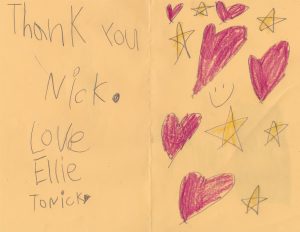 Thank you
Nick.
Love
Ellie
TO NICK